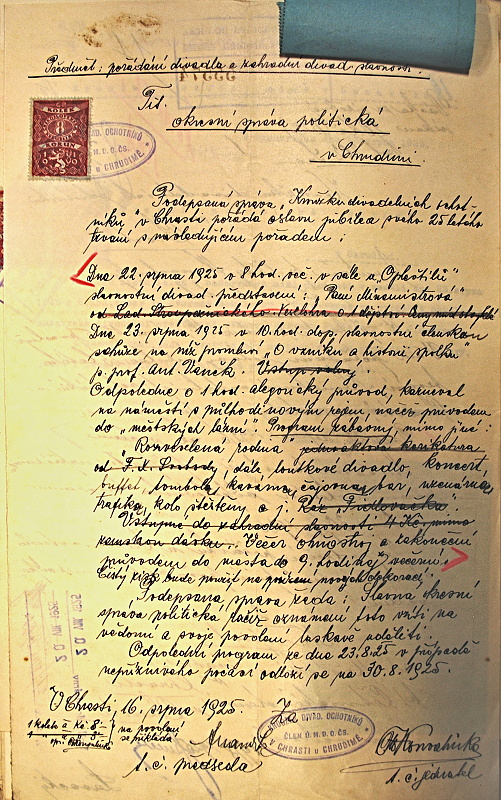 Předmět: pořádání divadla a zahradní divad. slavnosti.
Tit.
okresní správa politická
v Chrudimi
KOLEK
8
KORUN
D. OCHOTNÍKŮ
Ú. M. D. O. ČS.
U CHRUDIMĚ
Podepsaná správa „Kroužku divadelních ochot-
níků" v Chrasti pořádá oslavu jubilea svého 25 letého
trvání s následujícím pořadem:
Dne 22. srpna 1925 v 8 hod. več. v sále u „Opletištilů"
slavnostní divad. představení: „Paní Mincmistrová"
od Lad. Stroupežnického.
Dne 23. srpna 1925 v 10. hod. dop. slavnostní členskou
schůze na níž promluví „O vzniku a historii spolku"
p. prof. Ant. Vaněk. Vstup volný.
Odpoledne o 1 hod. alegorický průvod, karneval
na náměstí s půlhodinovým rejem, načež průvodem
do „městských lázní". Program zábavný, mimo jiné:
„Rozveselená rodina" jednoaktová karikatura
od F. X. Svobody, dále loutkové divadlo, koncert,
buffet, tombola, kavárna, čajovna, bar, vinárna,
trafika, kolo štěstěny a j. Ráz „Fidlovačka".
Vstupné do zahradní slavnosti 4 Kč, mimo
zemskou dávku. Večer ohňostroj a zakončení
průvodem do města do 9. hodiny večerní.
Čistý zisk bude použit na pořízení nových dekorací.
Podepsaná správa žádá: Slavná okresní
správa politická račiž oznámení toto vzíti na
vědomí a svoje povolení laskavě uděliti.
Odpolední program ze dne 23.8.25 v případě
nepříznivého počasí odloží se na 30.8.1925.
V Chrasti, 16. srpna 1925. Za
1 kolek á Kč. 8·-
na povolení
se přikládá
DIVAD. OCHOTNÍKŮ
ČLEN Ú. M. D. O. ČS.
V CHRASTI u CHRUDIMĚ
t. č. předseda
t. č. jednatel